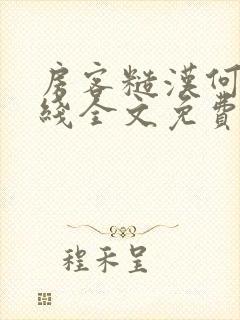 房客糙漢何
綫全文免費
程禾呈